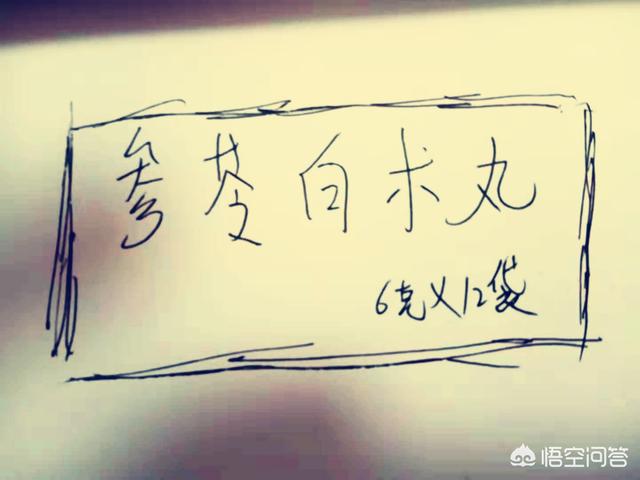 参苓白术丸
6克×12袋
悟空问答